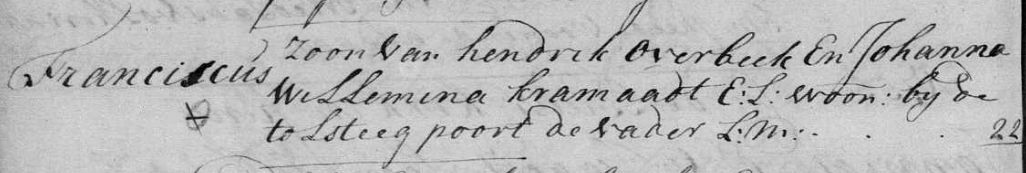 Franciscus Zoon van hendrik overbeek En Johanna
Willemina kramaadt E: L: woon: by de
tolsteeg poort de vader L: M: . . . 22